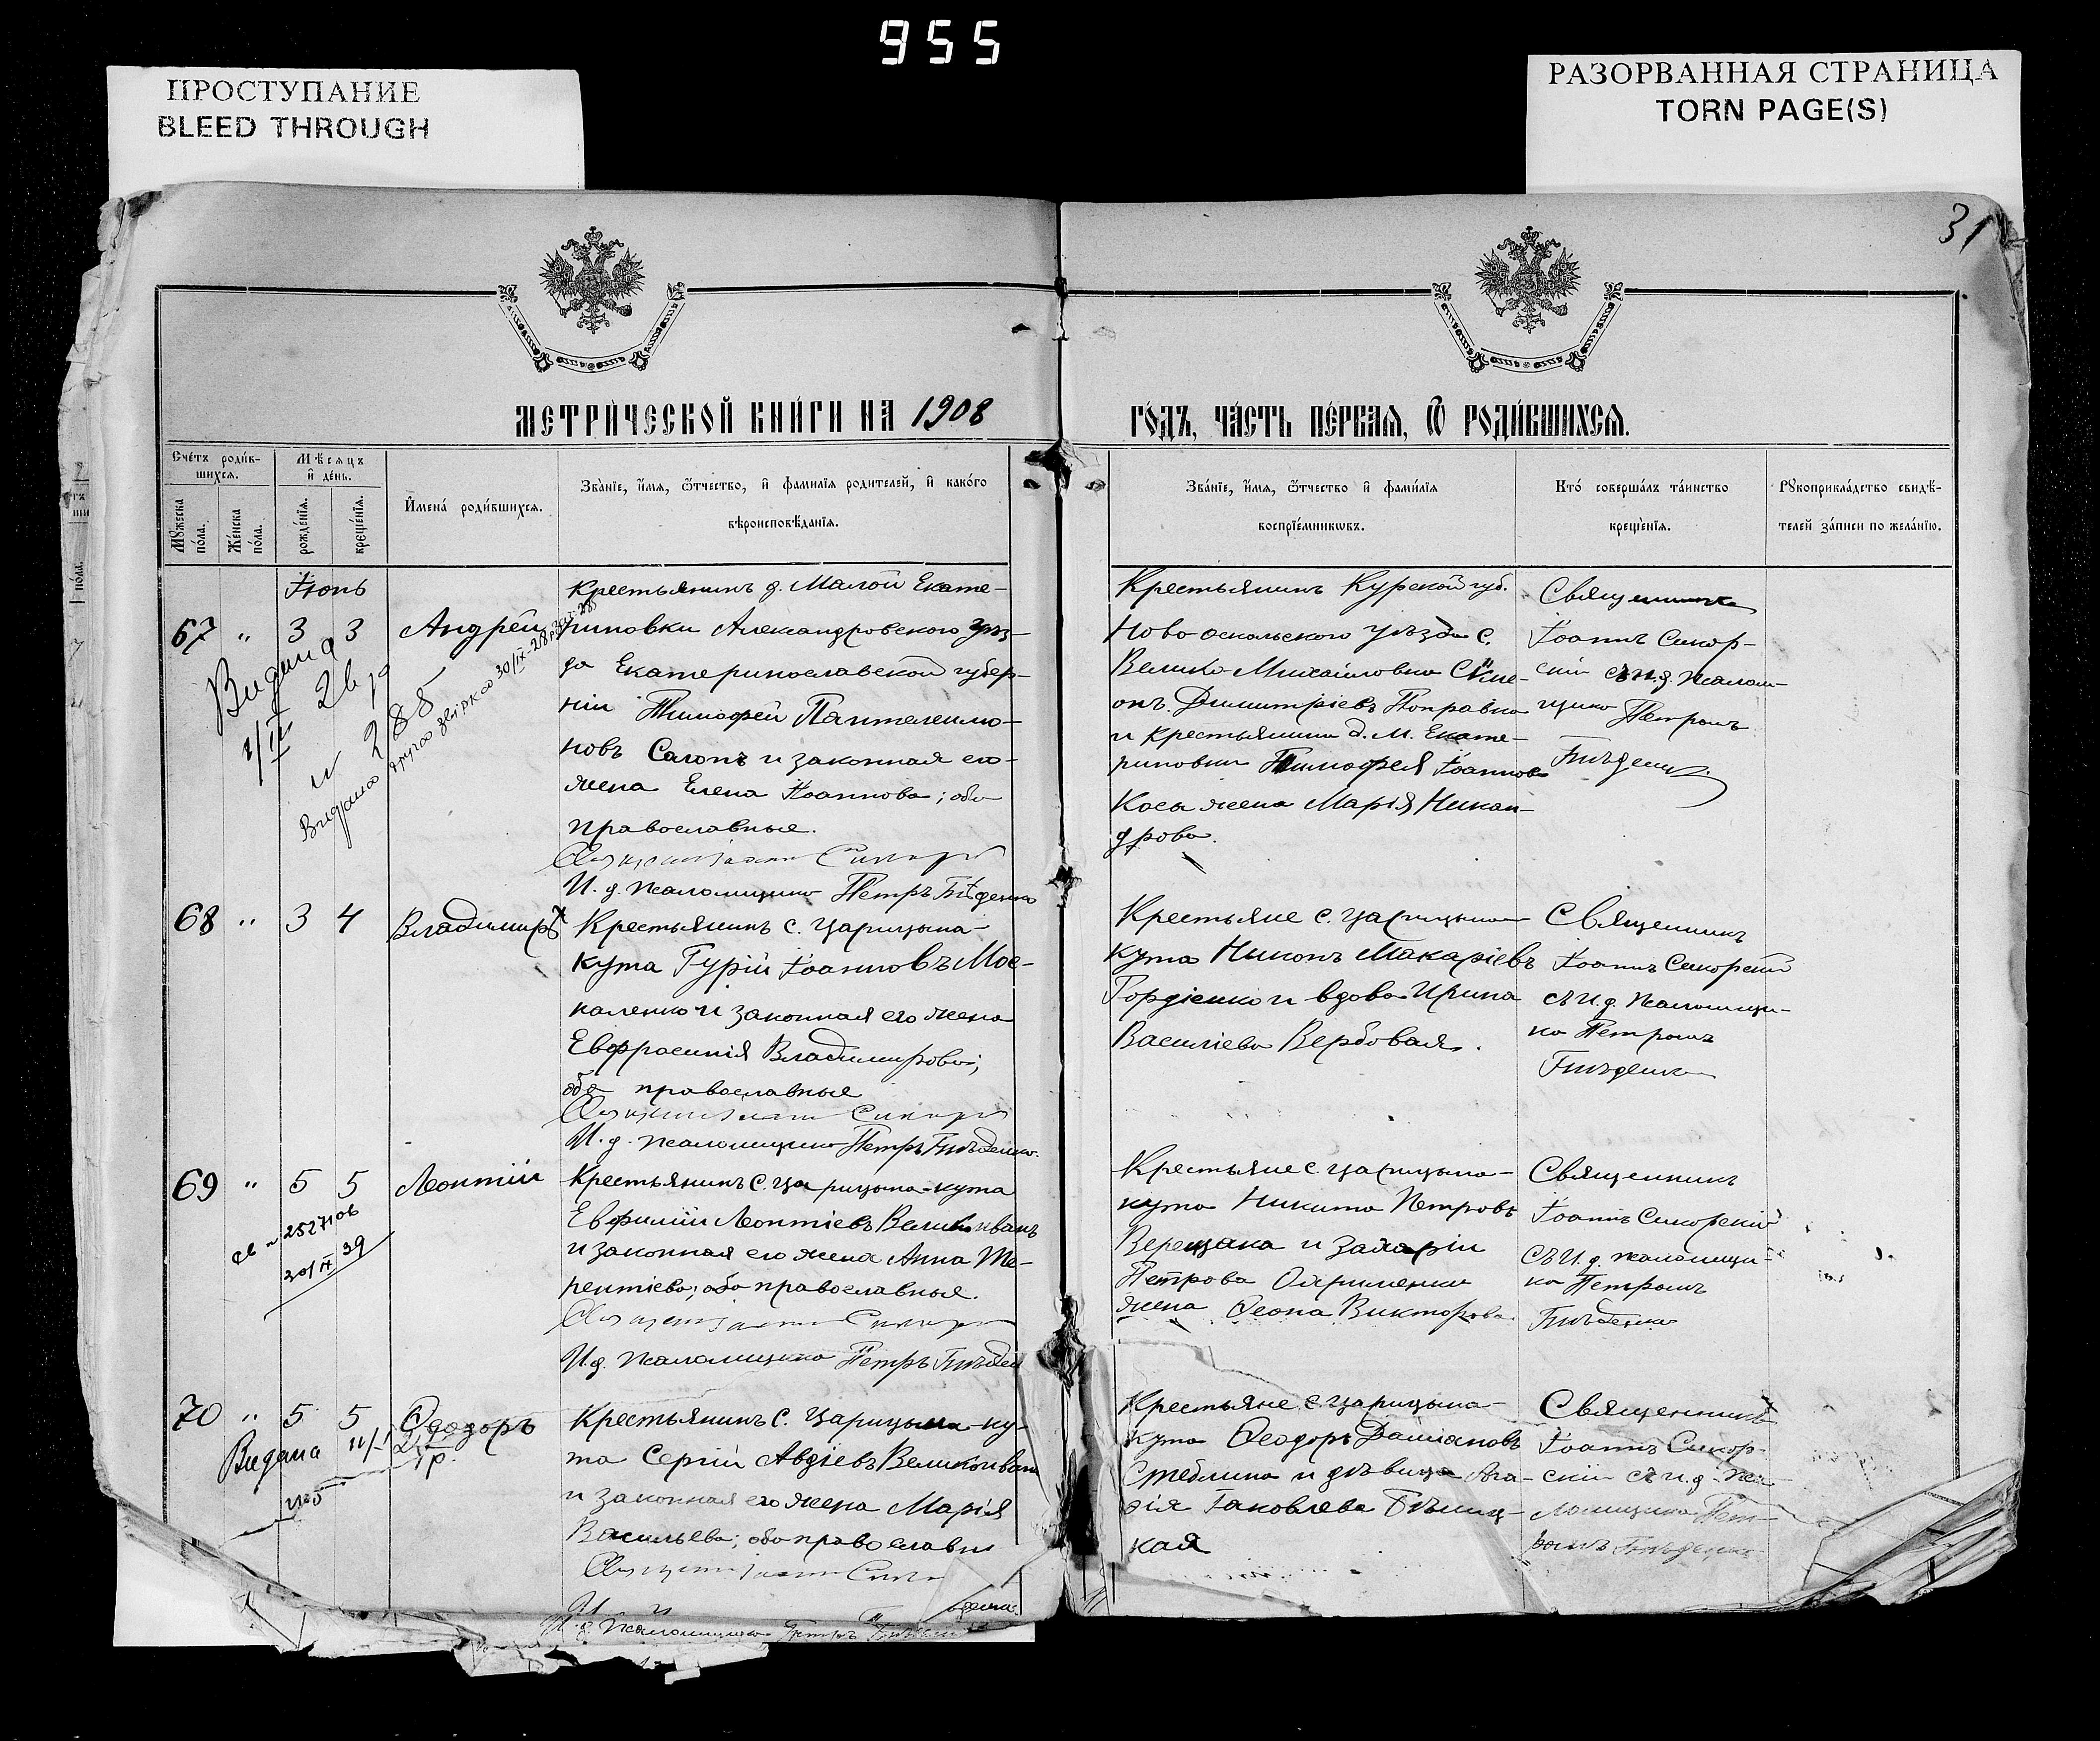 955
ПРОСТУПАНИЕ
BLEED THROUGH
РАЗОРВАННАЯ СТРАНИЦА
TORN PAGE(S)
31
МЕТРИ́ЧЕСКОЙ КНИ́ГИ НА 1908
ГО́ДЪ, ЧА́СТЬ ПЕ́РВАЯ, Ѿ РОДИ́ВШИХСЯ.
Сче́тъ роди́в-
шихся.
Мѣсяцъ
и де́нь.
Мꙋ́жеска по́ла.
Же́нска по́ла.
рожде́нїя.
креще́нїя.
Имена̀ роди́вшихся.
Зва́нїе, и́мя, ѻ́тчество, и фамилїя родителей, и како́го
вѣроисповѣ́данїя.
Зва́нїе, и́мя, ѻ́тчество и фами́лїя
воспрїе́мниковъ.
Кто̀ соверша́лъ та́инство
креще́нїя.
Рꙋкоприкла́дство свидѣ́-
телей за́писи по жела́нїю.
Іюнь
67 " 3 3 Андрей
Крестьянинъ д. Малой Екате-
риновки Александровскаго уѣз-
да Екатеринославской губер-
ніи Тимофей Пантелеимо-
новъ Сагонъ и законная его
жена Елена Іоаннова; оба
православные.
И. д. псаломщика Петръ Гнѣденко
Крестьянинъ Курской губ.
Ново оскольского уѣзда с.
Велико Михайловка Симе-
онъ Димитріевъ Поправка
и крестьянина д. М. Екате-
риновки Тимофея Іоаннова
Коса жена Марія Никан-
дрова.
Священникъ
Іоаннъ Сикор-
скій съ и. д. псалом-
щика Петромъ
Гнѣденко.
Видана
2в р
№ 288
Видана друга звірка 30/IX-28
68 " 3 4 Владимиръ
Крестьянинъ с. Царицына-
кута Гурій Іоанновъ Мос-
каленко и законная его жена
Евфрасинія Владимирова;
оба православные
И. д. псаломщика Петръ Гнѣденко.
Крестьяне с. Царицына
кута Никонъ Макаріевъ
Гордіенко и вдова Ирина
Василіева Вербовая.
Священникъ
Іоаннъ Сикорскій
съ и. д. псаломщи-
ка Петромъ
Гнѣденко
69 " 5 5 Леонтій
Крестьянинъ с. Царицына-кута
Евфимій Леонтіевъ Великоиванъ
и законная его жена Анна Те-
рентіева; оба православные.
И. д. псаломщика Петръ Гнѣден
Крестьяне с. Царицына-
кута Никита Петровъ
Верещака и Захарія
Петрова Охрименка
жена Ѳеона Викторова
Священникъ
Іоаннъ Сикорскій
съ и. д. псаломщи-
ка Петромъ
Гнѣденко
30/IX 39
70 " 5 5 Ѳеодоръ
Крестьянинъ с. Царицына-ку-
та Сергій Авдіевъ Великоиван
и законная его жена Марія
Васильева; оба православн
И. д. псаломщика Петръ Гнѣденко
Крестьяне с. Царицына-
кута Ѳеодоръ Даміановъ
Стеблина и дѣвица Ага-
ѳія Іаковлева Бѣлиц-
кая
Священникъ
Іоаннъ Сикор-
скій съ и. д. пса-
ломщика Пет-
ромъ Гнѣденко
Видана